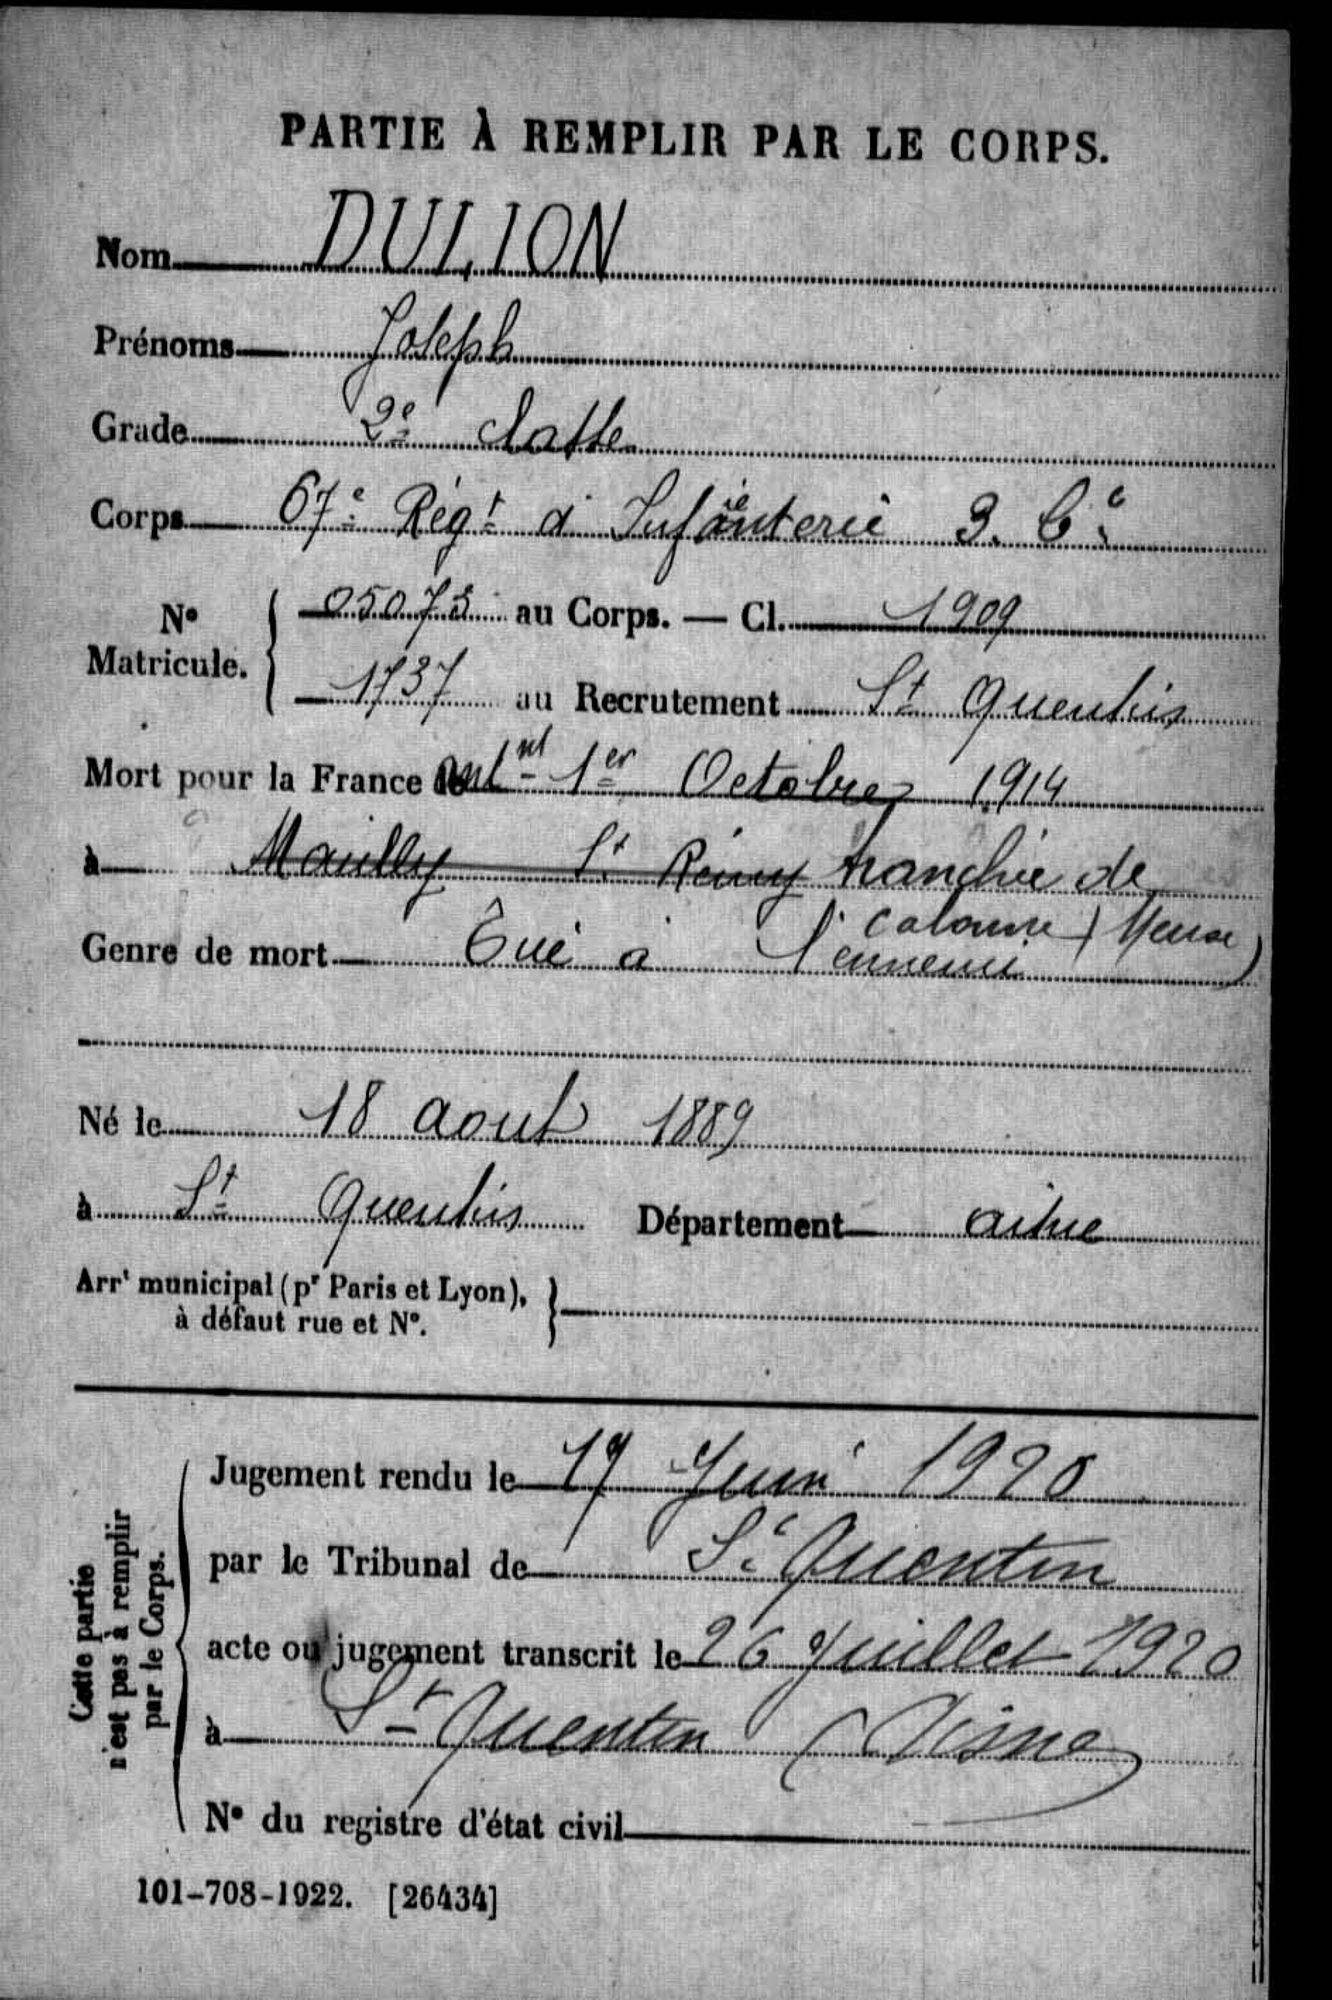 PARTIE À REMPLIR PAR LE CORPS.
Nom DULION
Prénoms Joseph
Grade 2e classe
Corps 67e Régt d'Infanterie 3. Cie
No Matricule. 05073 au Corps. — Cl. 1909
1737 au Recrutement St Quentin
Mort pour la France le 1er Octobre 1914
à Mailly St Rémy tranchée de
Calonne (Meuse)
Genre de mort Tué à l'ennemi
Né le 18 aout 1889
à St Quentin Département aisne
Arrt municipal (pr Paris et Lyon),
à défaut rue et No.
Cette partie
n'est pas à remplir
par le Corps.
Jugement rendu le 17 Juin 1920
par le Tribunal de St Quentin
acte ou jugement transcrit le 26 Juillet 1920
à St Quentin (Aisne
No du registre d'état civil
101-708-1922. [26434]